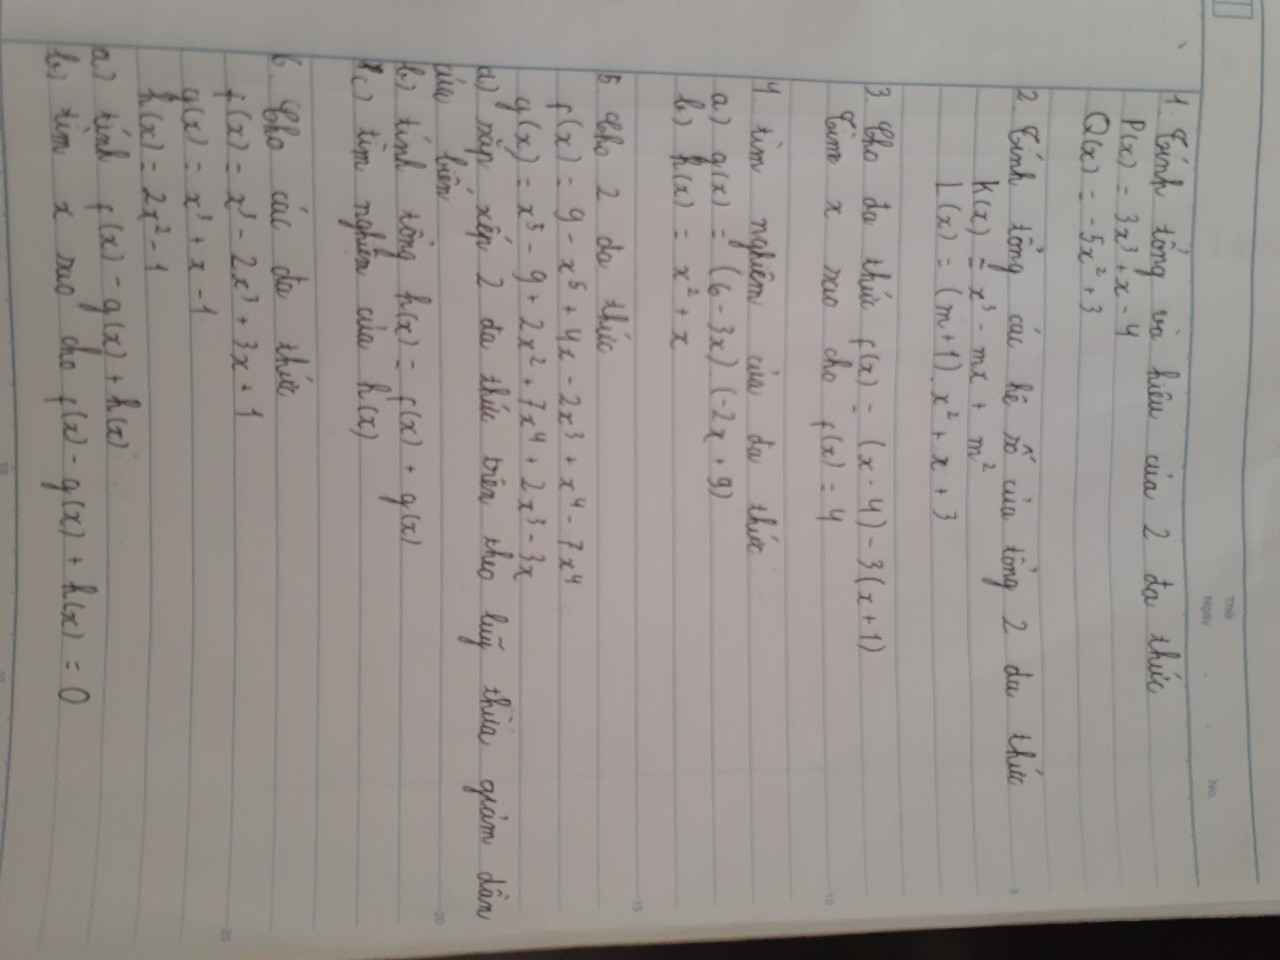 Thứ
Ngày
No.
1. Tính tổng và hiệu của 2 đa thức
P(x) = 3x³ + x - 4
Q(x) = -5x² + 3
2 Tính tổng các hệ số của tổng 2 đa thức
K(x) = x³ - mx + m²
L(x) = (m+1).x² + x + 3
3 Cho đa thức f(x) = (x-4) - 3(x+1)
Tìm x sao cho f(x) = 4
4 tìm nghiệm của đa thức
a) g(x) = (6-3x)(-2x+9)
b) h(x) = x² + x
5 Cho 2 đa thức
f(x) = 9 - x⁵ + 4x - 2x³ + x⁴ - 7x⁴
g(x) = x⁵ - 9 + 2x² + 7x⁴ + 2x³ - 3x
a) sắp xếp 2 đa thức trên theo luỹ thừa giảm dần
của biến
b) tính tổng h(x) = f(x) + g(x)
c) tìm nghiệm của h(x)
6. Cho các đa thức
f(x) = x³ - 2x² + 3x + 1
g(x) = x³ + x - 1
h(x) = 2x² - 1
a) tính f(x) - g(x) + h(x)
b) tìm x sao cho f(x) - g(x) + h(x) = 0